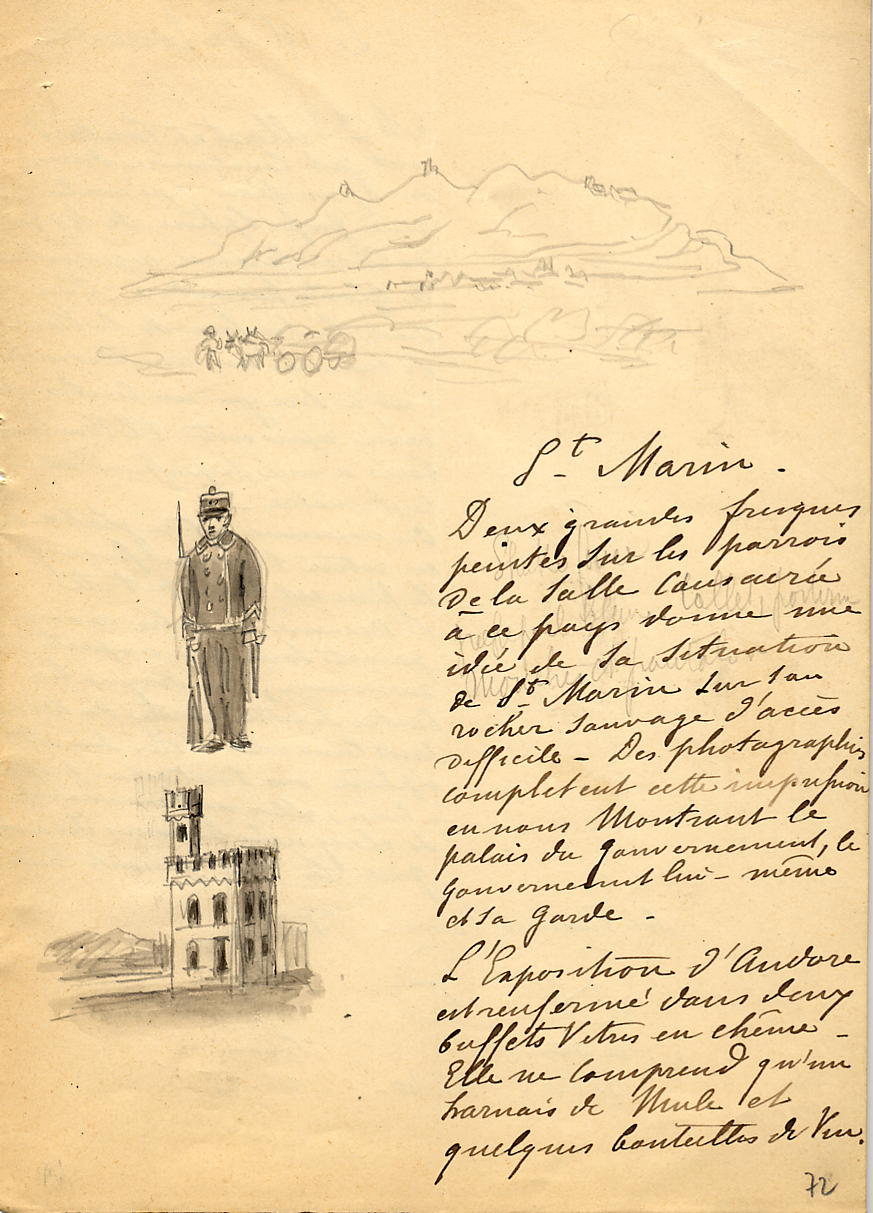 St Marin.
Deux grandes fresques
peintes sur les parrois
de la salle Consacrée
à ce pays donne une
idée de sa situation
de St Marin sur son
rocher sauvage d'accès
difficile - Des photographies
completent cette impression
en nous Montrant le
palais du Gouvernement, le
Gouvernement lui-même
et sa Garde -
L'Exposition d'Andore
est renfermé dans deux
buffets Vitrés en chême -
Elle ne Comprend qu'un
harnais de Mule et
quelques bouteilles de Vin.
72